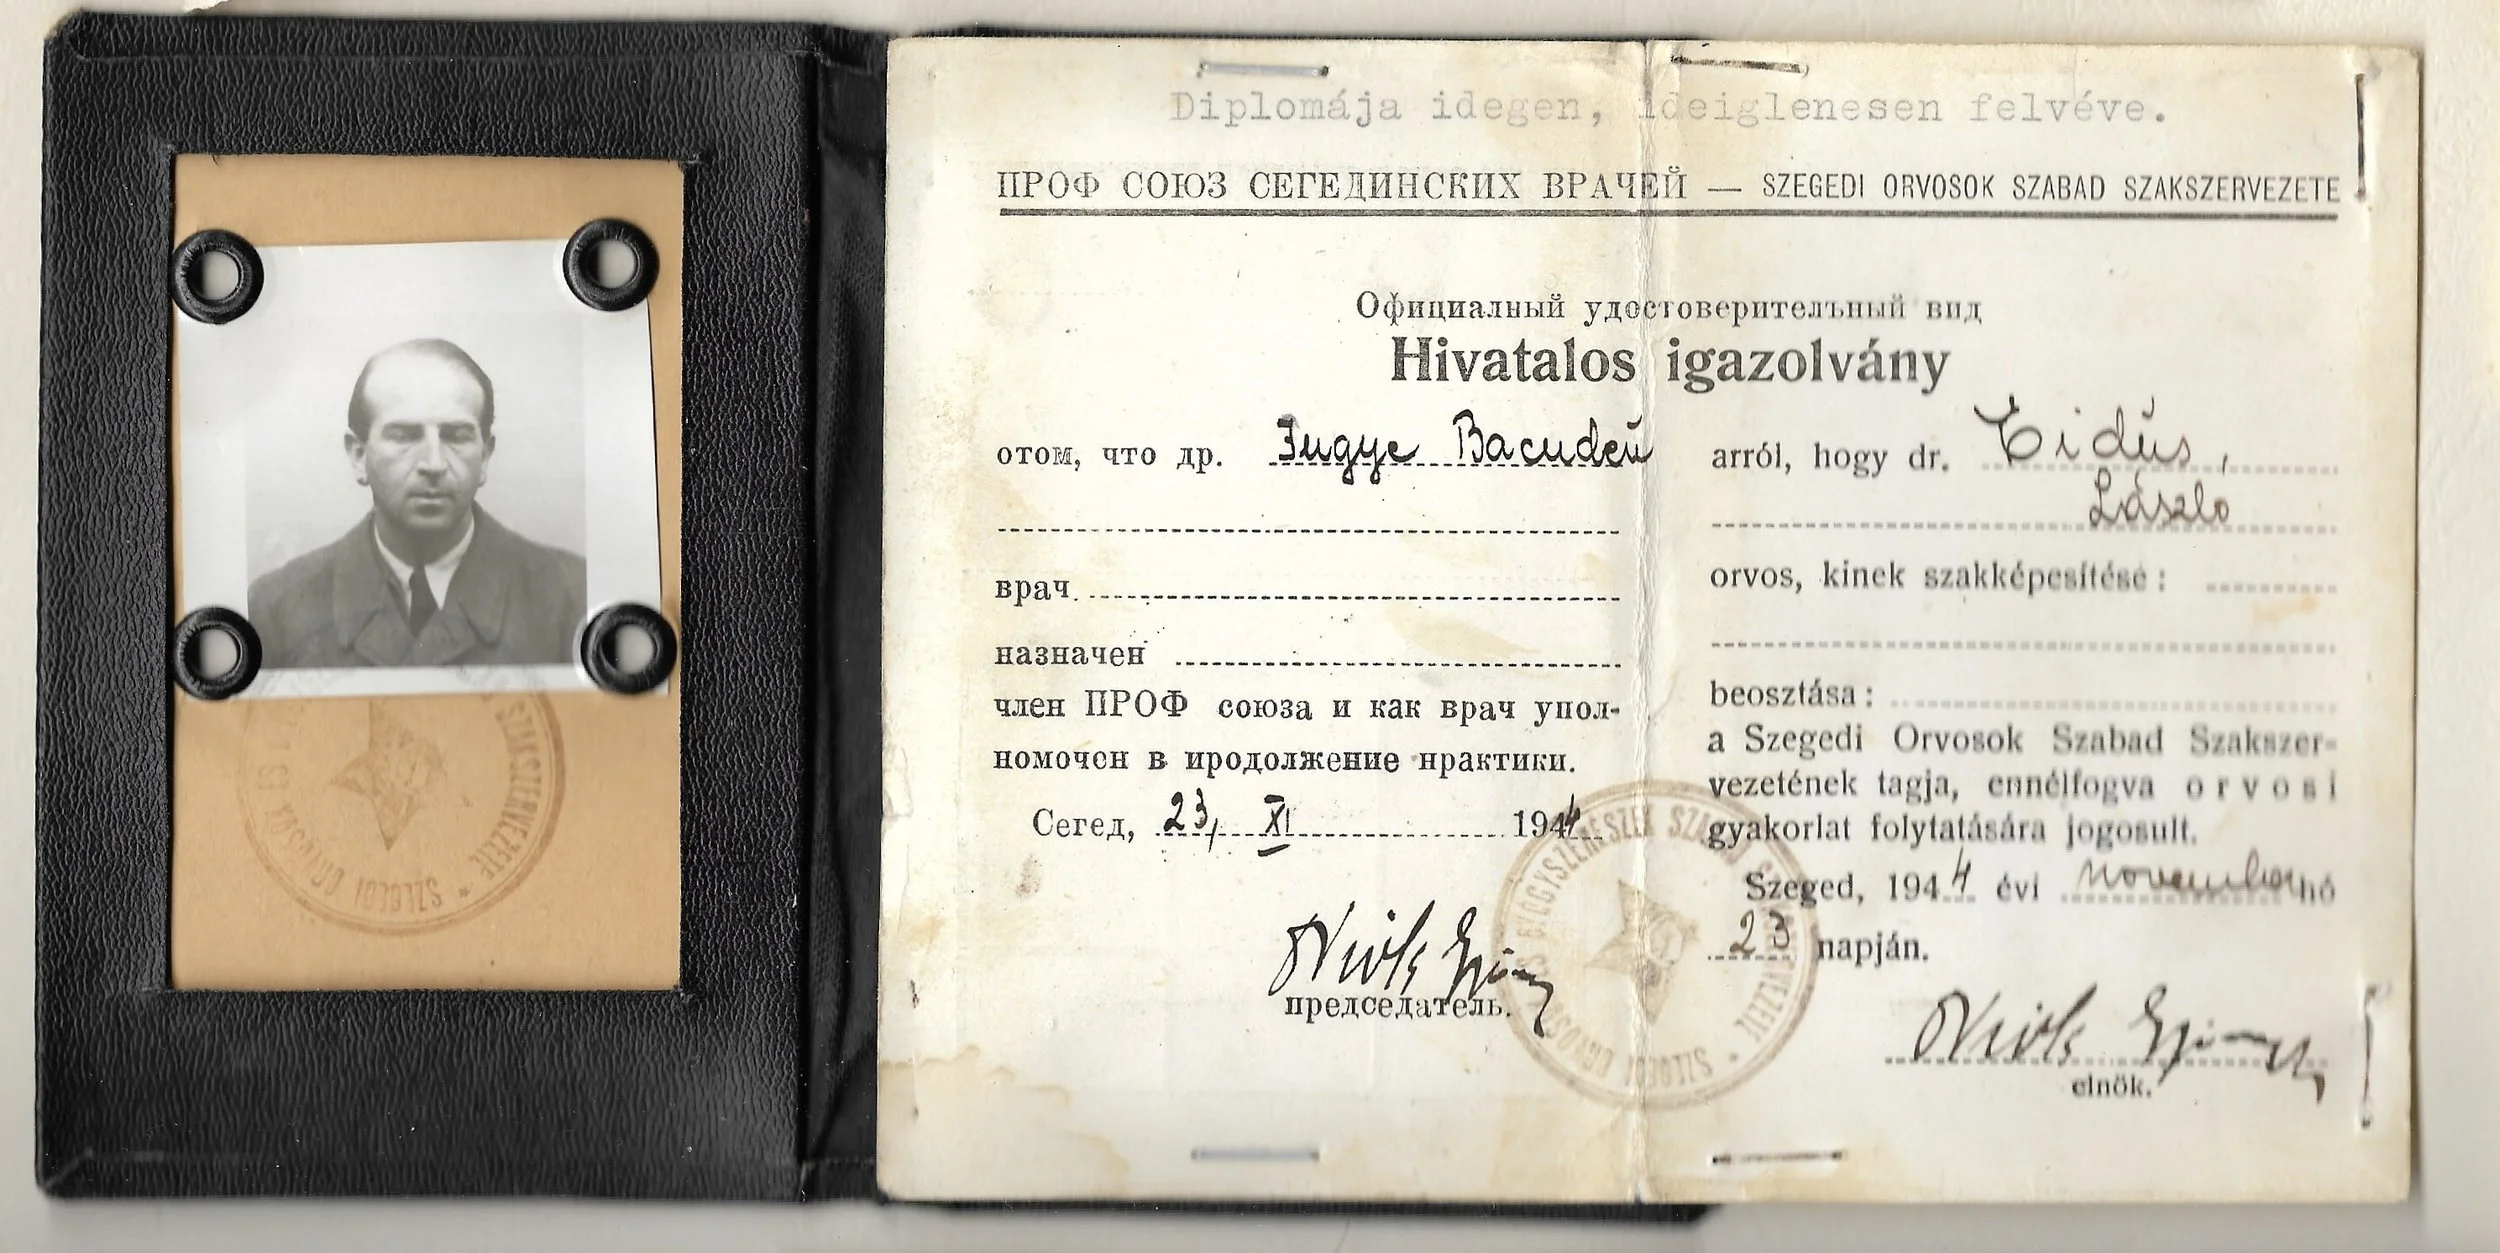 Diplomája idegen, ideiglenesen felvéve.
ПРОФ СОЮЗ СЕГЕДИНСКИХ ВРАЧЕЙ — SZEGEDI ORVOSOK SZABAD SZAKSZERVEZETE
Официалный удостоверителъный вид
Hivatalos igazolvány
отом, что др.
врач
назначен
член ПРОФ союза и как врач упол-
номочен в иродолжение нрактики.
Сегед, 23, XI 1944
председатель.
arról, hogy dr. Eidüs,
László
orvos, kinek szakképesítése:
beosztása:
a Szegedi Orvosok Szabad Szakszer-
vezetének tagja, ennélfogva orvosi
gyakorlat folytatására jogosult.
Szeged, 1944 évi november hó
23 napján.
elnök.
SZEGEDI ORVOSOK ÉS SZAKSZERVEZETE
SZEGEDI ORVOSOK ÉS GYÓGYSZERÉSZEK SZABAD SZAKSZERVEZETE